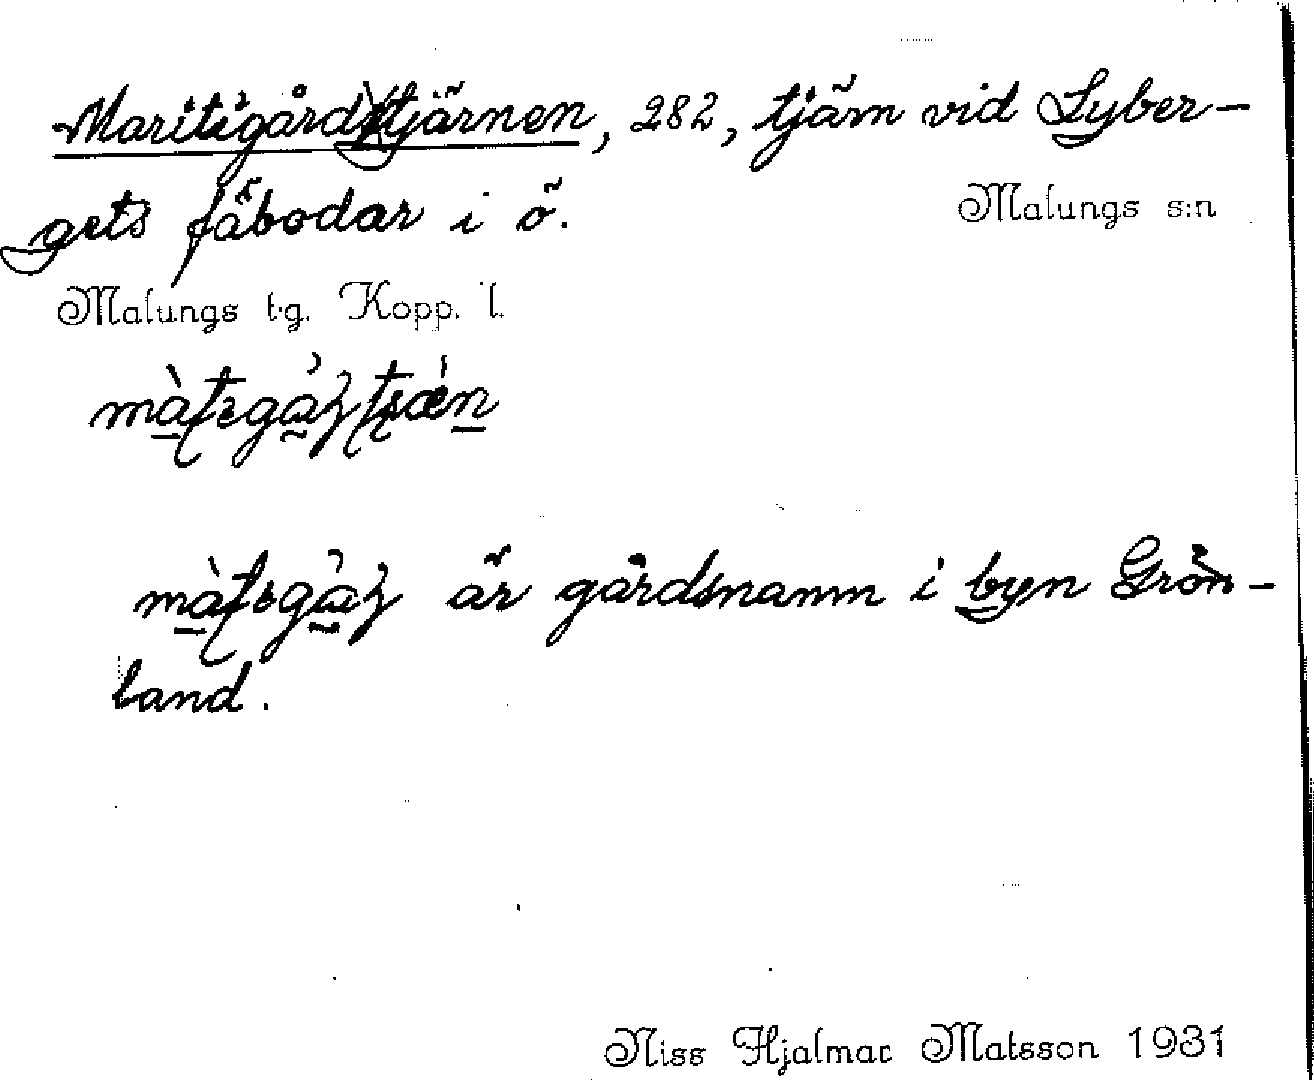 Maritigårdstjärnen, 282, tjärn vid Lyber-
gets fäbodar i ö.
Malungs s:n
Malungs t.g. Kopp. l.
är gårdsnamn i byn Grön-
land.
Niss Hjalmar Matsson 1931